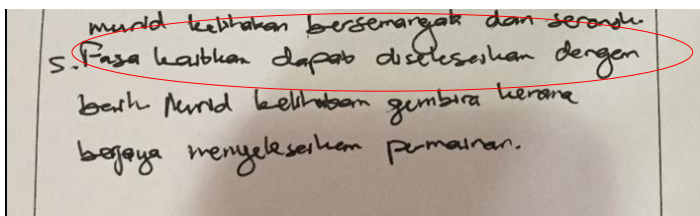 murid kelihatan bersemangat dan seronok.
5. Fasa kaitkan dapat diselesaikan dengan
baik. Murid kelihatan gembira kerana
berjaya menyelesaikan permainan.